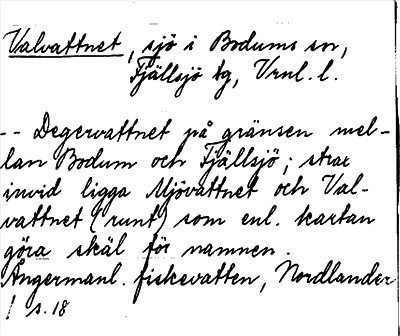 Valvattnet, sjö i Bodums sn,
Fjällsjö tg, Vrnl. l.
-- Degervattnet på gränsen mel-
lan Bodum och Fjällsjö; strax
invid ligga Mjövattnet och Val-
vattnet (runt) som enl. kartan
göra skäl för namnen.
Ångermanl. fiskevatten, Nordlander
! s. 18